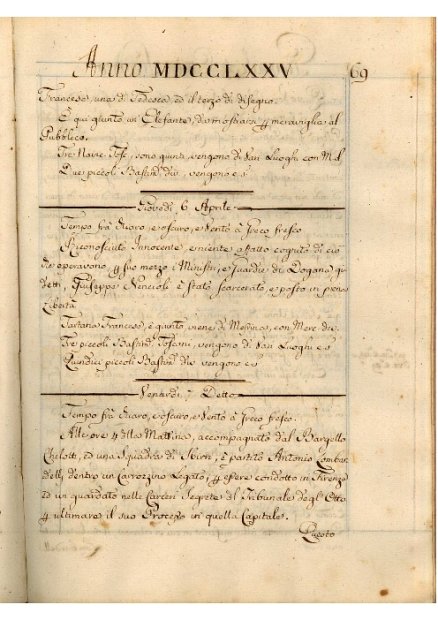 Anno MDCCLXXV 69
Francese, una di Tedesco, ed il terzo di disegno.
È qui giunto un Elefante, da mostrarsi p meraviglia al
Pubblico.
Tre Nave Tose, sono giunte, vengono di Van Luoghi con Md
Due piccoli Bastim di, vengono
Giovedì 6 Aprile
Tempo frà chiaro, e oscuro, e Vento à Greco fresco
Riconosciuto Innocente, e niente affatto cognito di ciò
che operavono p suo mezzo i Ministri, e Guardie di Dogana, qui
detti, Giuseppe Nencioli è stato scarcerato, e posto in piena
Libertà
Tartana Francese, è giunta, viene di Messina, con Merc die
Tre piccoli Bastim Toscani, vengono di Van Luoghi
Quindici piccoli Bastim die vengono
Venerdì 7 Detto
Tempo frà chiaro, e oscuro, e Vento à Greco fresco.
Alle ore 4 della Mattina, accompagnato dal Bargello
Chelotti, ed una Squadra di Sbirri, è partito Antonio Lombar
delli, dentro un Carrozzino Legato, p essere condotto in Firenze
ed un guardato nelle Carceri Segrete del Tribunale degl' Otto
p ultimare il suo Processo in quella Capitale.
Questo